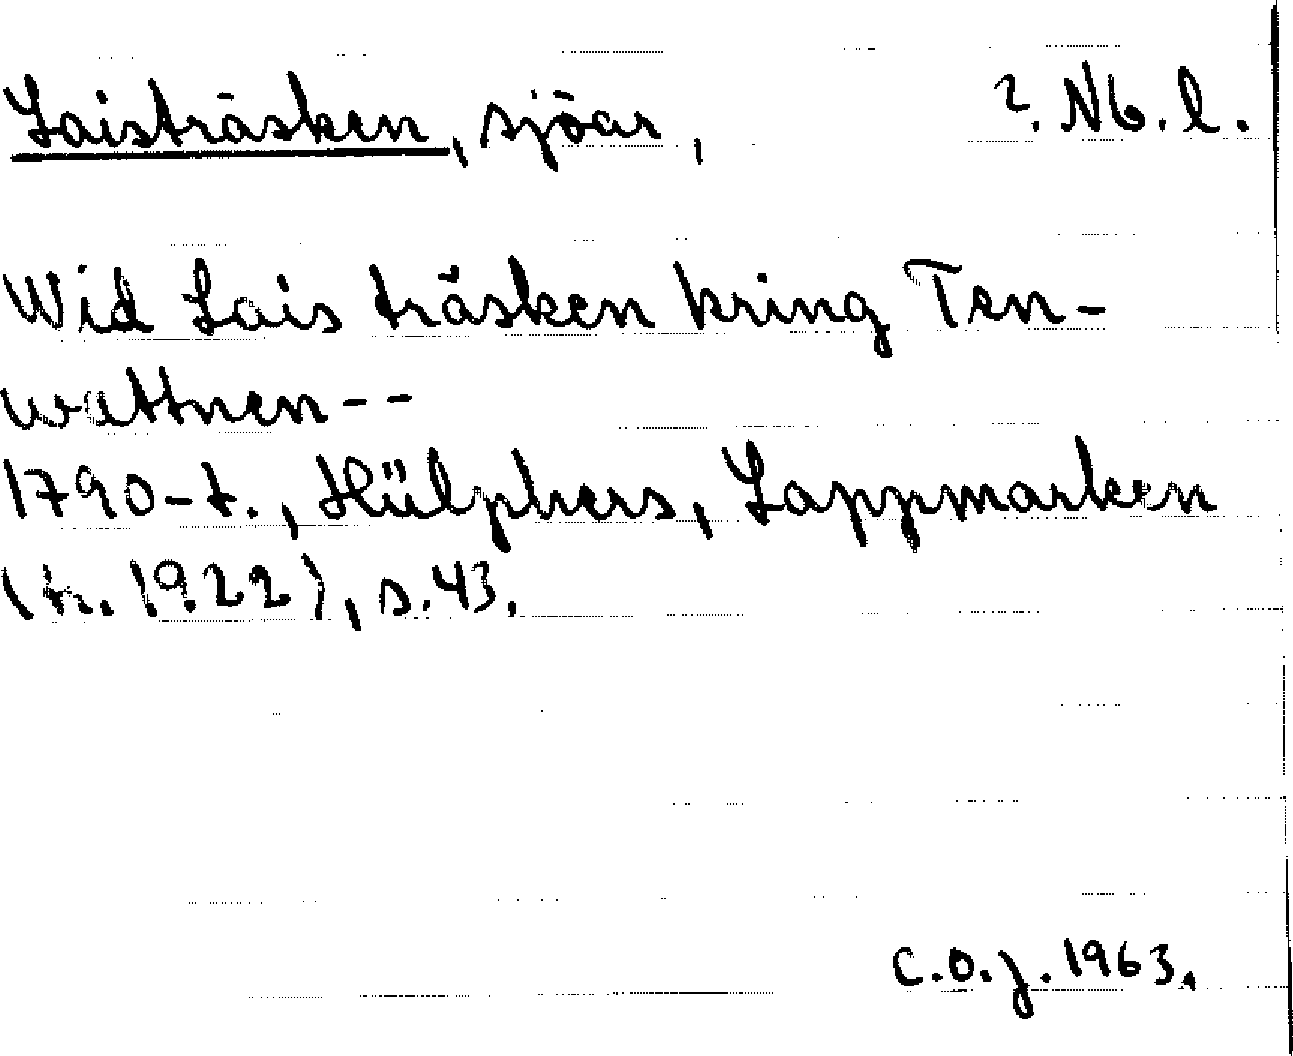 Laisträsken, sjöar, ?. Nb. l.
Wid Lais träsken kring Ten-
wattnen--
1790-t., Hülphers, Lappmarken
(tr. 1922), s. 43.
C.O.J. 1963.